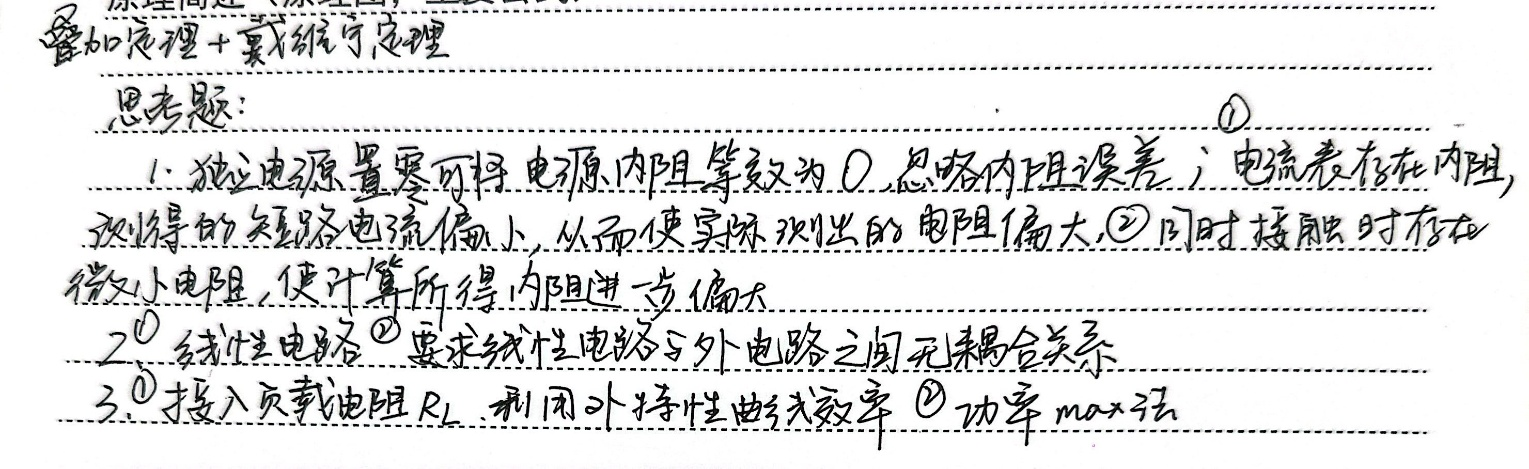 叠加定理+戴维宁定理
思考题:
①
1. 独立电源置零可将电源内阻等效为0,忽略内阻误差;电流表存在内阻,
测得的短路电流偏小,从而使实际测出的电阻偏大,②同时接触时存在
微小电阻,使计算所得内阻进一步偏大
2.① 线性电路 ②要求线性电路与外电路之间无耦合关系
3.①接入负载电阻RL.利用外特性曲线效率 ②功率max法